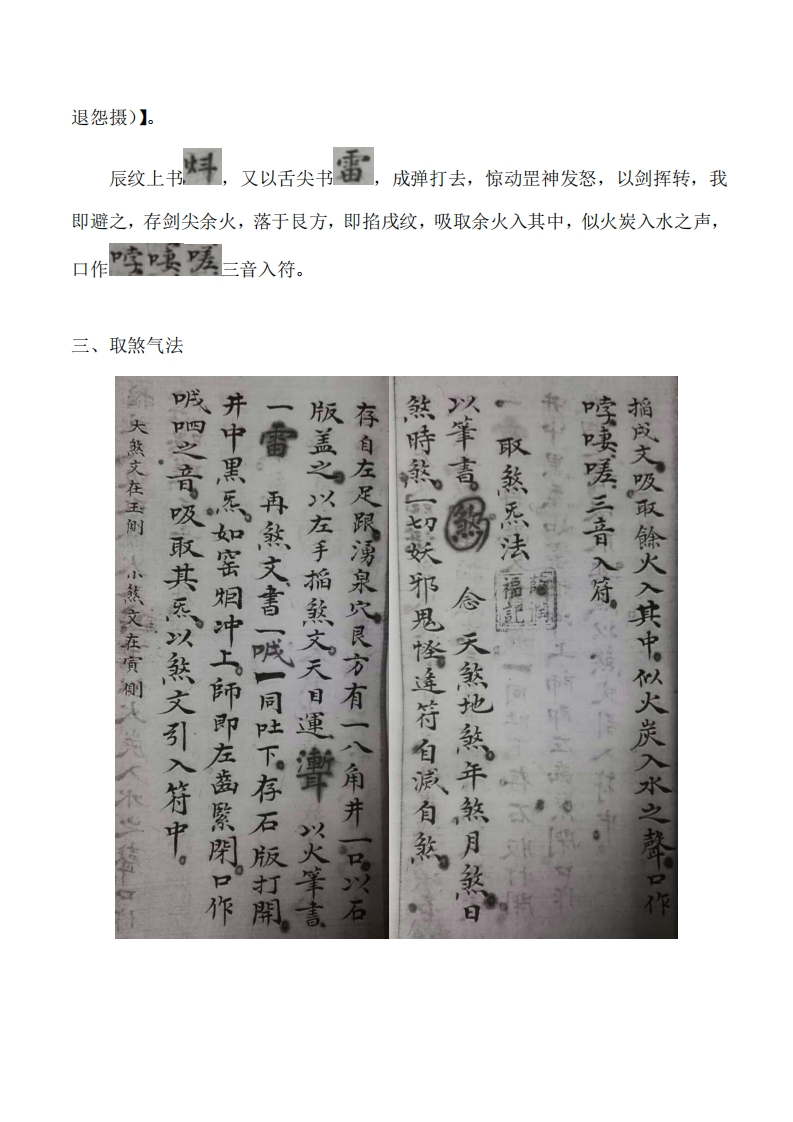 退怨摄）】。
辰纹上书，又以舌尖书雷，成弹打去，惊动罡神发怒，以剑挥转，我
即避之，存剑尖余火，落于艮方，即掐戌纹，吸取余火入其中，似火炭入水之声，
口作哱啛嗟三音入符。
三、取煞气法
掐戌文。吸取餘火入其中。似火炭入水之聲。口作
哱啛嗟三音入符。
取煞炁法
福記
以筆書。煞 念 天煞地煞。年煞月煞。日
煞時煞。一切妖邪鬼怪。逢符自滅自煞。
存自左足跟。湧泉穴。艮方有一八角井一口。以石
版盖之。以左手掐煞文。天目運 以火筆書
一雷 再煞文書一 一同吐下。存石版打開。
井中黑炁。如窑烟冲上。師即左齒緊閉。口作
之音。吸取其炁。以煞文引入符中。
大煞文在玉側 小煞文在寅側